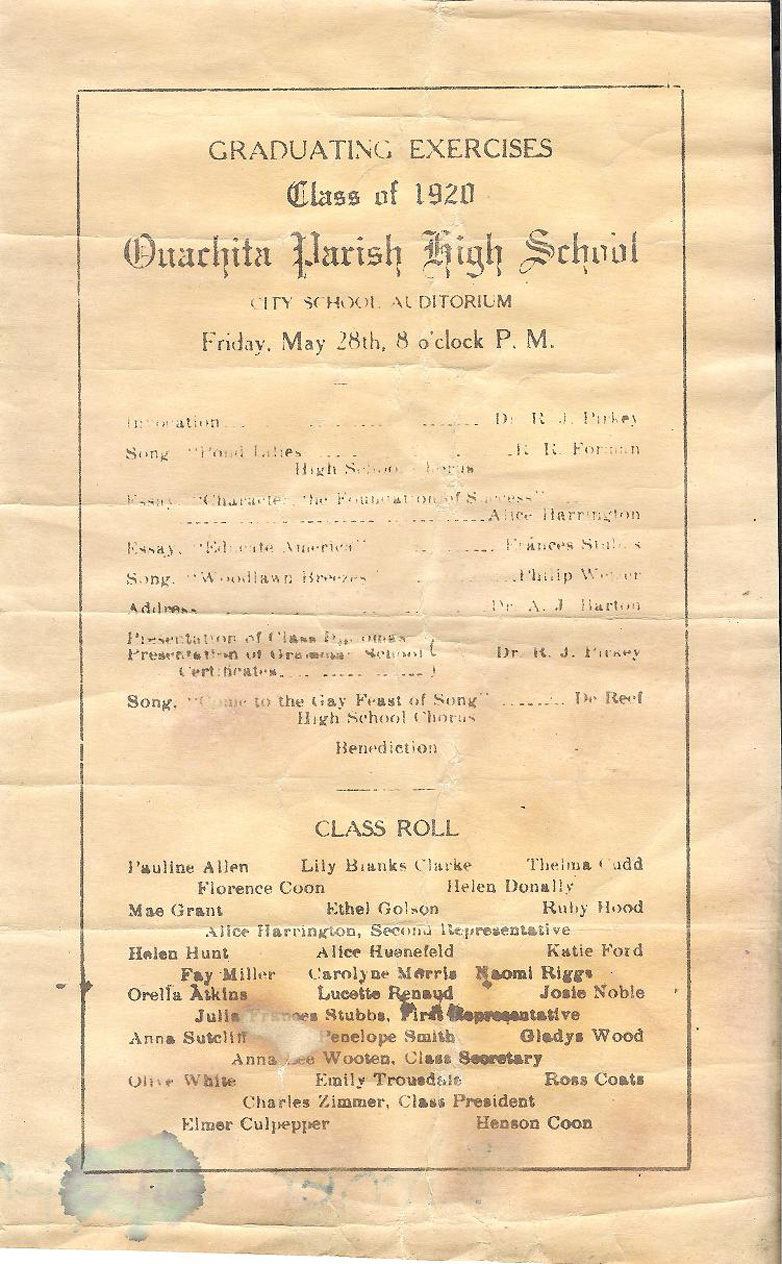 GRADUATING EXERCISES
Class of 1920
Ouachita Parish High School
CITY SCHOOL AUDITORIUM
Friday, May 28th, 8 o'clock P. M.
Invocation Dr. R. J. Pirkey
Song, "Pond Lilies R. R. Forman
High School Chorus
Essay, "Character, the Foundation of Success"
Alice Harrington
Essay, "Educate America" Frances Stubbs
Song, "Woodlawn Breezes" Philip
Address Dr. A. J. Barton
Presentation of Class Diplomas
Presentation of Grammar School Dr. R. J. Pirkey
Certificates
Song, "Come to the Gay Feast of Song" De Reef
High School Chorus
Benediction
CLASS ROLL
Pauline Allen Lily Blanks Clarke Thelma Cudd
Florence Coon Helen Donally
Mae Grant Ethel Golson Ruby Hood
Alice Harrington, Second Representative
Helen Hunt Alice Huenefeld Katie Ford
Fay Miller Carolyne Morris Naomi Riggs
Orella Atkins Lucette Renaud Josie Noble
Julia Frances Stubbs, First Representative
Anna Sutcliff Penelope Smith Gladys Wood
Anna Lee Wooten, Class Secretary
Olive White Emily Trousdale Ross Coats
Charles Zimmer, Class President
Elmer Culpepper Henson Coon